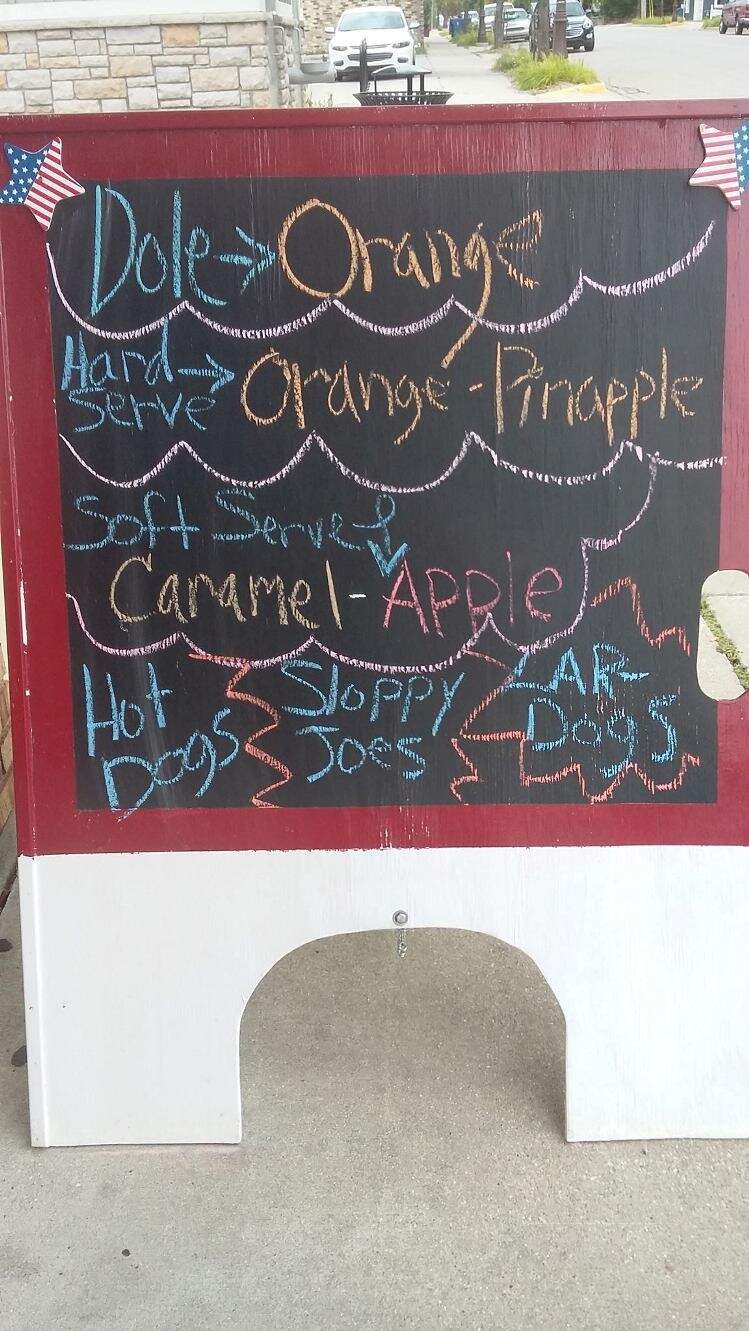 Dole → Orange
Hard → Orange-Pinapple
Serve
Soft Serve
Caramel-Apple
Hot Sloppy AR-
Dogs Joes Dogs